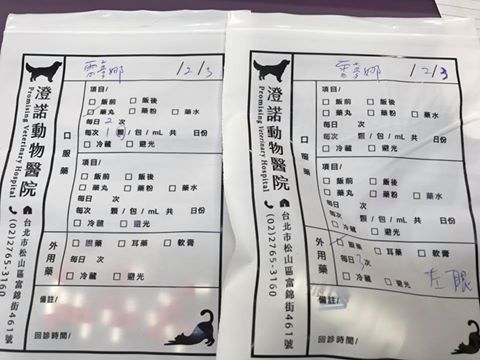 澄諾動物醫院
Promising Veterinary Hospital
台北市松山區富錦街461號
(02)2765-3160
12/3
口服藥
項目/
飯前 飯後
藥丸 藥粉 藥水
每日2次
每次1顆/包/mL 共 日份
冷藏 避光
項目/
飯前 飯後
藥丸 藥粉 藥水
每日 次
每次 顆/包/mL 共 日份
冷藏 避光
外用藥
眼藥 耳藥 軟膏
每日 次
冷藏 避光
備註/
回診時間/
澄諾動物醫院
Promising Veterinary Hospital
台北市松山區富錦街461號
(02)2765-3160
12/3
口服藥
項目/
飯前 飯後
藥丸 藥粉 藥水
每日 次
每次 顆/包/mL 共 日份
冷藏 避光
項目/
飯前 飯後
藥丸 藥粉 藥水
每日 次
每次 顆/包/mL 共 日份
冷藏 避光
外用藥
眼藥 耳藥 軟膏
每日3次
冷藏 避光
左眼
備註/
回診時間/